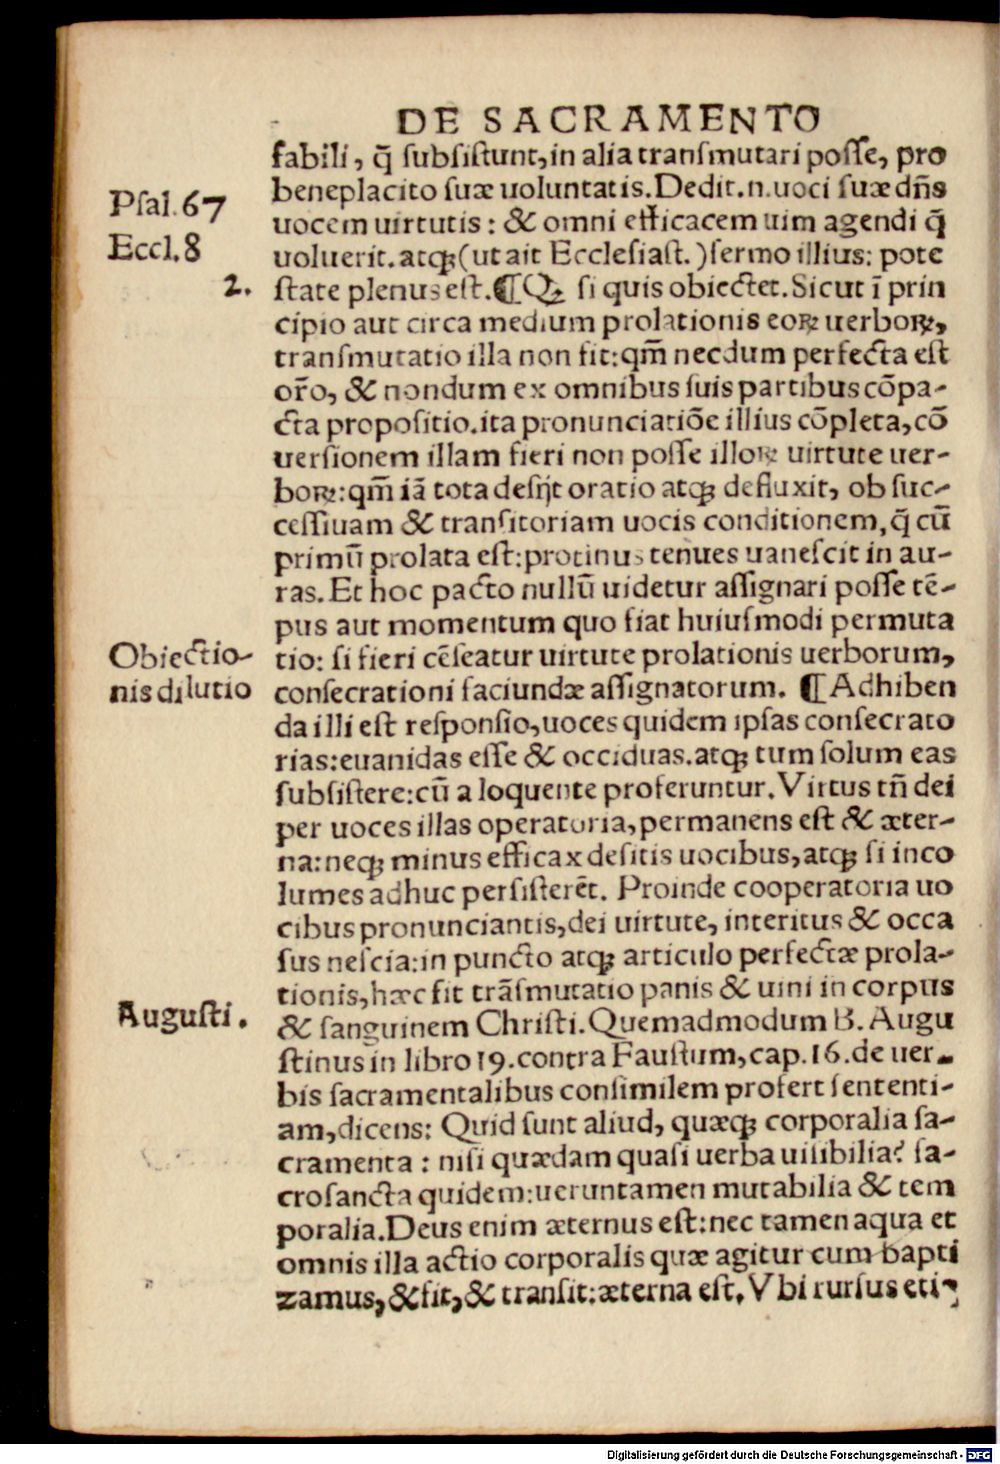 DE SACRAMENTO
fabili, q̃ subsistunt, in alia transmutari posse, pro
beneplacito suæ uoluntatis. Dedit .n. uoci suæ dñs
Psal. 67
uocem uirtutis: & omni efficacem uim agendi q̃
Eccl. 8
uoluerit. atqꝫ (ut ait Ecclesiast.) sermo illius: pote
2.
state plenus est. ¶ Qꝫ si quis obiectet. Sicut ĩ prin
cipio aut circa medium prolationis eoꝝ uerboꝝ,
transmutatio illa non fit: qm̃ necdum perfecta est
or̃o, & nondum ex omnibus suis partibus cõpa-
cta propositio. ita pronunciatiõe illius cõpleta, cõ
uersionem illam fieri non posse illoꝝ uirtute uer-
boꝝ: qm̃ iã tota desijt oratio atqꝫ defluxit, ob suc-
cessiuam & transitoriam uocis conditionem, q̃ cũ
primũ prolata est: protinus tenues uanescit in au-
ras. Et hoc pacto nullũ uidetur assignari posse tẽ-
pus aut momentum quo fiat huiusmodi permuta
Obiectio-
tio: si fieri cẽseatur uirtute prolationis uerborum,
nis dilutio
consecrationi faciundæ assignatorum. ¶ Adhiben
da illi est responsio, uoces quidem ipsas consecrato
rias: euanidas esse & occiduas. atqꝫ tum solum eas
subsistere: cũ a loquente proferuntur. Virtus tñ dei
per uoces illas operatoria, permanens est & æter-
na: neqꝫ minus efficax desitis uocibus, atqꝫ si inco
lumes adhuc persisterẽt. Proinde cooperatoria uo
cibus pronunciantis, dei uirtute, interitus & occa
sus nescia: in puncto atqꝫ articulo perfectæ prola-
tionis, hæc fit trãsmutatio panis & uini in corpus
Augusti.
& sanguinem Christi. Quemadmodum B. Augu
stinus in libro 19. contra Faustum, cap. 16. de uer-
bis sacramentalibus consimilem profert sententi-
am, dicens: Quid sunt aliud, quæqꝫ corporalia sa-
cramenta: nisi quædam quasi uerba uisibilia? sa-
crosancta quidem: ueruntamen mutabilia & tem
poralia. Deus enim æternus est: nec tamen aqua et
omnis illa actio corporalis quæ agitur cum bapti
zamus, & fit, & transit: æterna est. Vbi rursus eti-
Digitalisierung gefördert durch die Deutsche Forschungsgemeinschaft - DFG